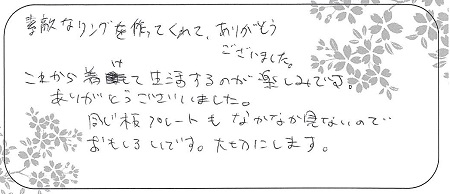 素敵なリングを作ってくれて、ありがとう
ございました。
これから着けて生活するのが楽しみです。
ありがとうございました。
同じ板プレートもなかなか見ないので
おもしろいです。大切にします。